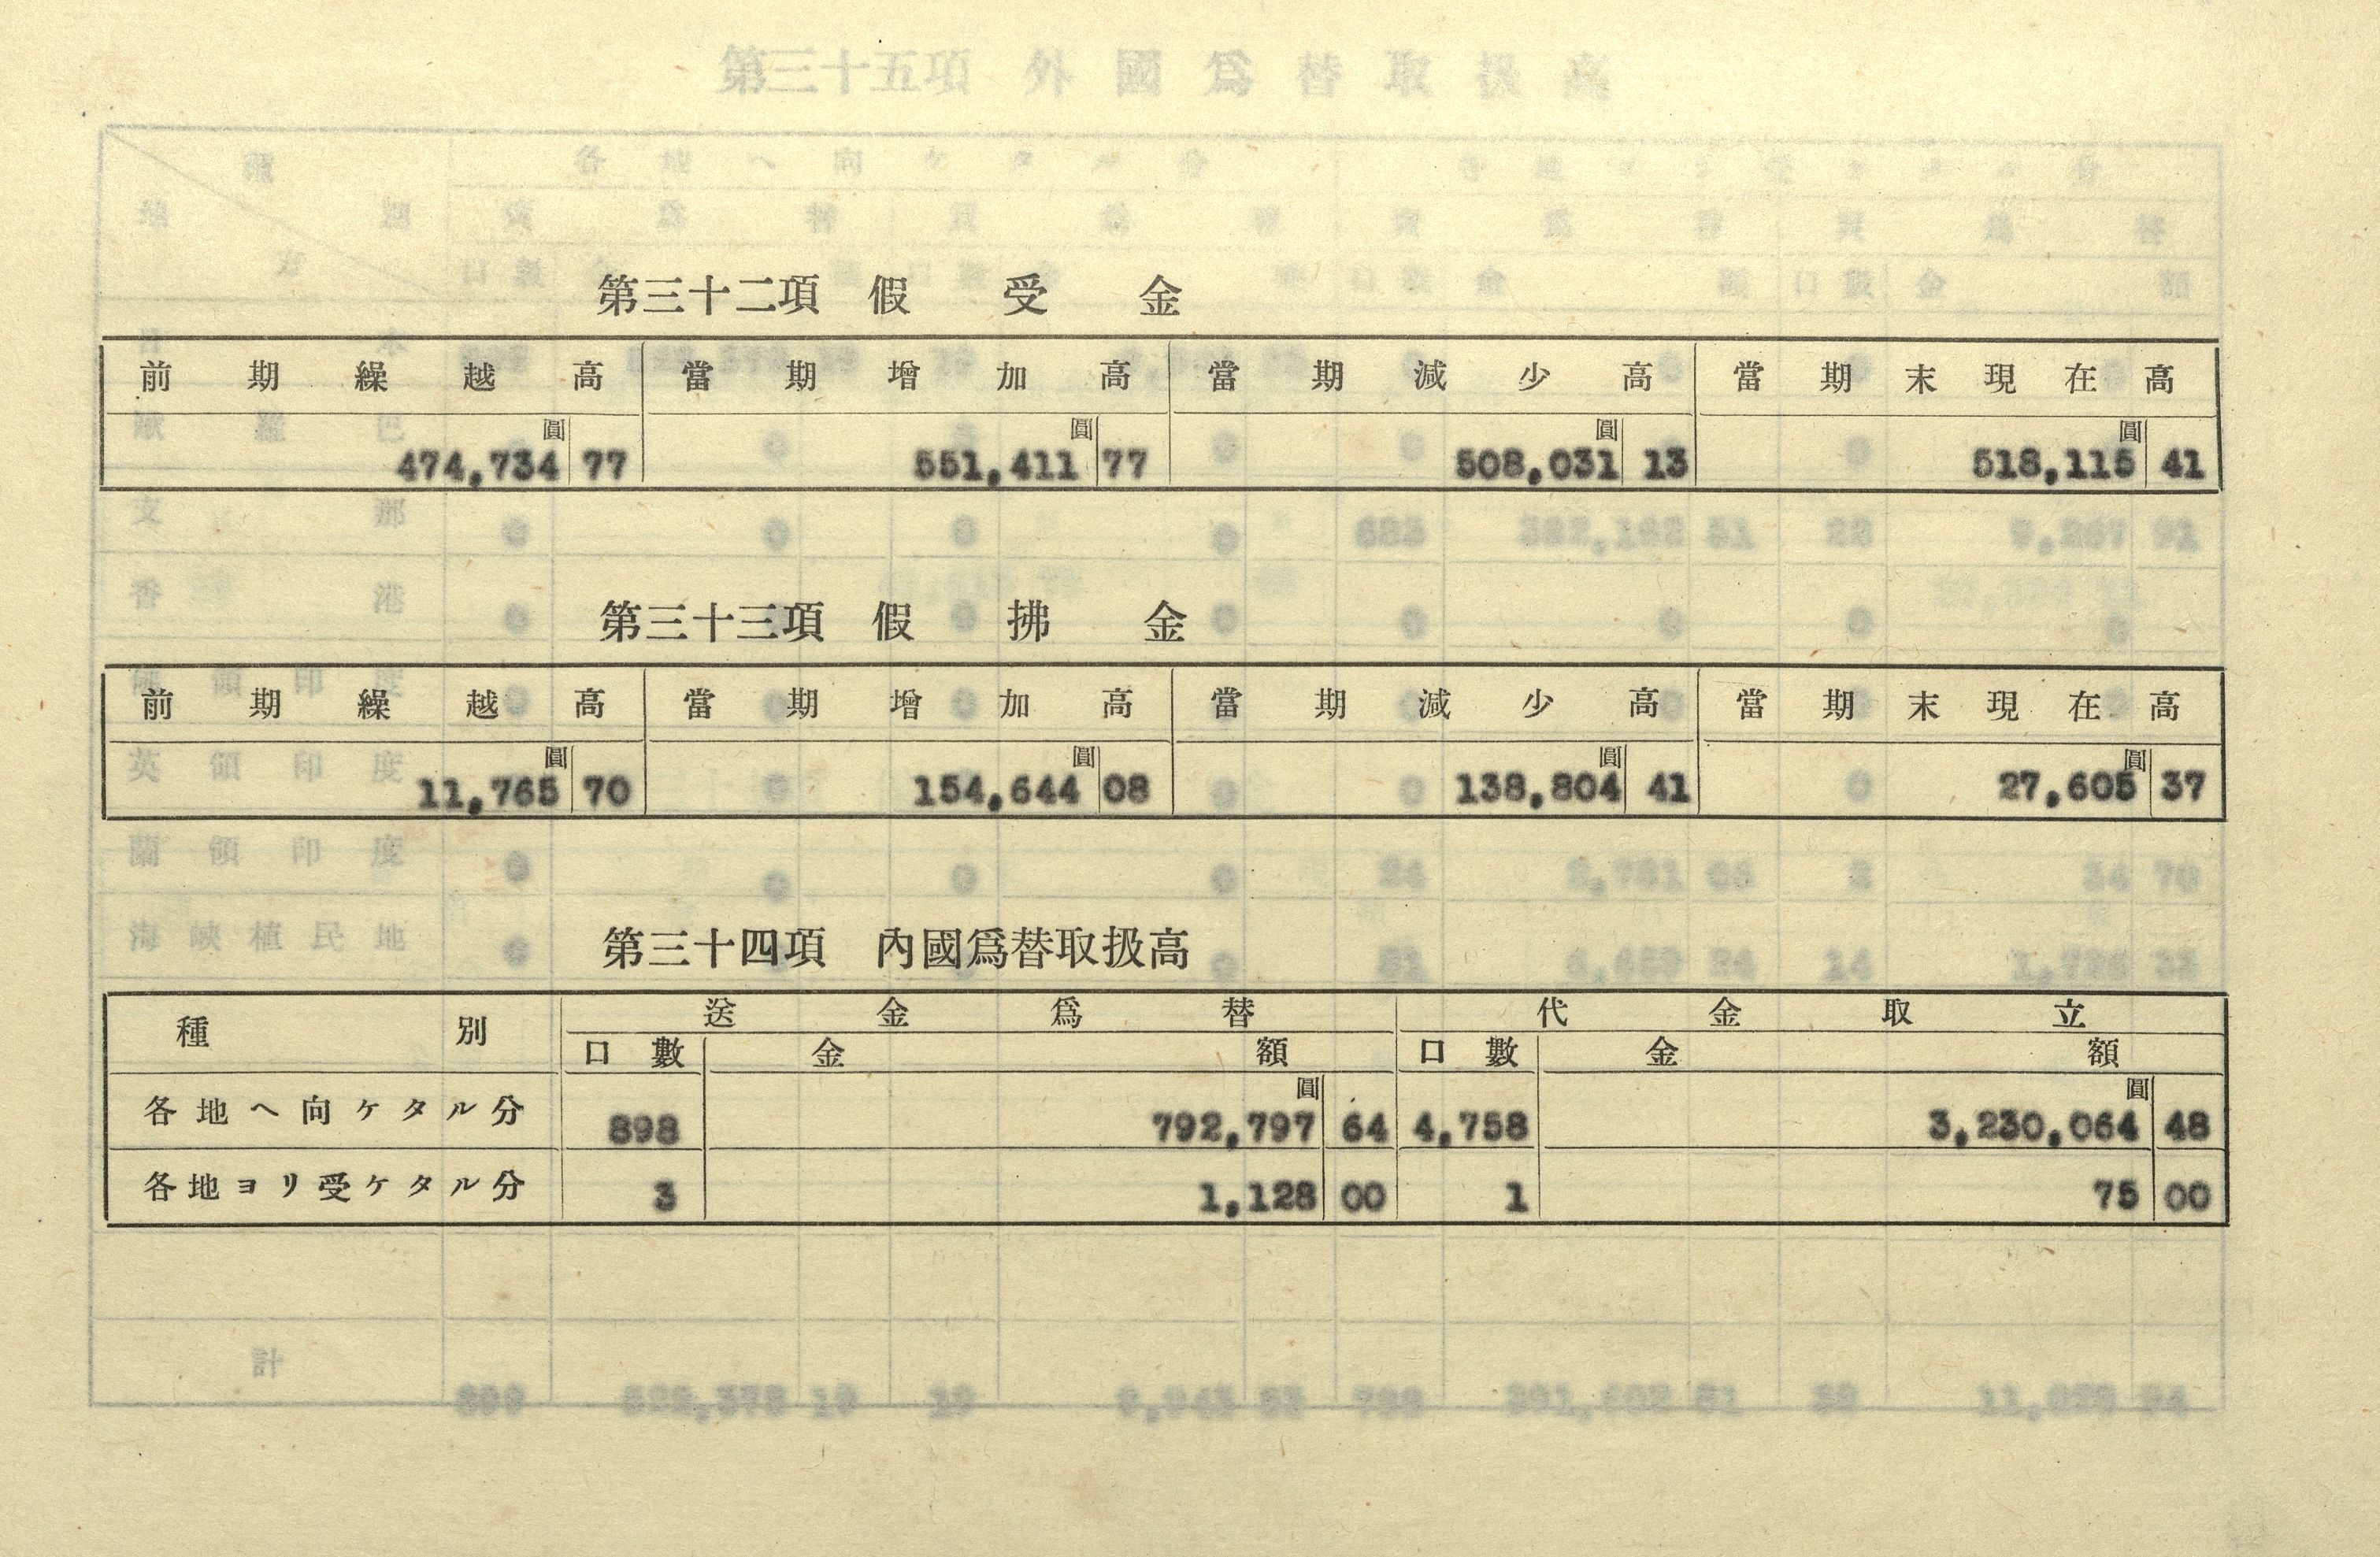 第三十二項 假受金
前期繰越高 當期增加高 當期減少高 當期末現在高
圓 圓 圓 圓
474,734 77 551,411 77 508,031 13 518,115 41
第三十三項 假拂金
前期繰越高 當期增加高 當期減少高 當期末現在高
圓 圓 圓 圓
11,765 70 154,644 08 138,804 41 27,605 37
第三十四項 內國爲替取扱高
種別 送金爲替 代金取立
口數 金額 口數 金額
圓 圓
各地ヘ向ケタル分 898 792,797 64 4,758 3,230,064 48
各地ヨリ受ケタル分 3 1,128 00 1 75 00